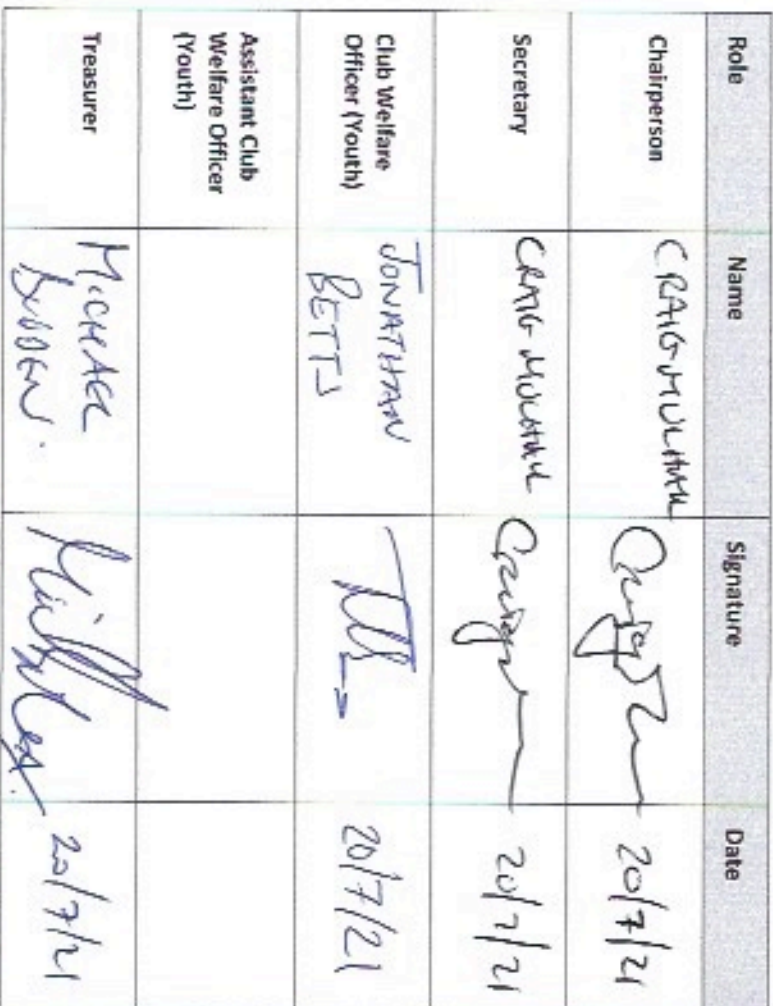 Role Name Signature Date
Chairperson CRAIG MULHALL 20/7/21
Secretary CRAIG MULHALL 20/7/21
Club Welfare JONATHAN
Officer (Youth) BETTS 20/7/21
Assistant Club
Welfare Officer
(Youth)
Treasurer MICHAEL 20/7/21